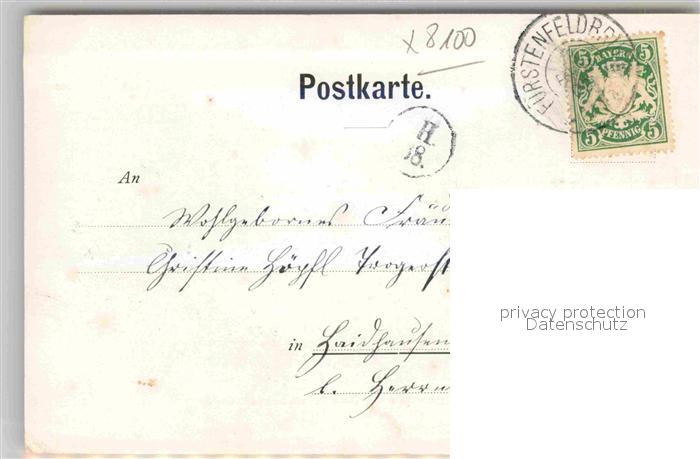 x 8100
Postkarte.
FÜRSTENFELDBR
5 BAYERN 5
5 PFENNIG 5
8.
An
Wohlgebornes Fräu
Christine Höpfl Trogerst
in Haidhausen
b. Herrn
privacy protection
Datenschutz